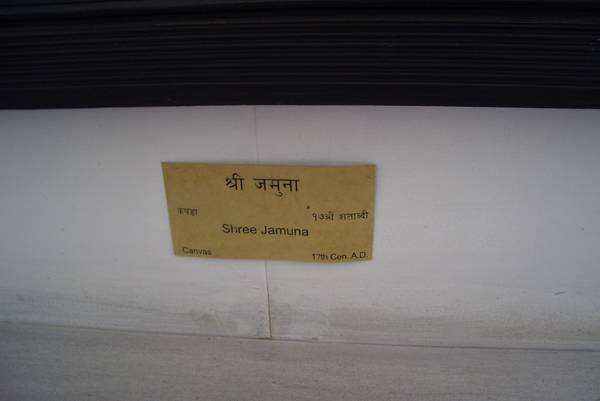 श्री जमुना
कपड़ा १७औ शताब्दी
Shree Jamuna
Canvas 17th Cen. A.D.